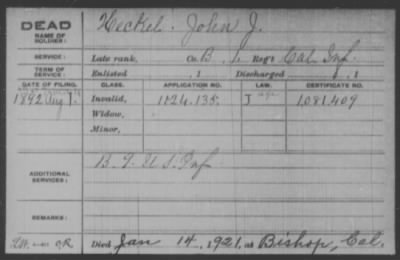 DEAD
NAME OF SOLDIER: Heckel. John J.
SERVICE: Late rank, Co. B, 1, Reg't Cal Inf.
TERM OF SERVICE: Enlisted , 1 Discharged , 1
DATE OF FILING. CLASS. APPLICATION NO. LAW. CERTIFICATE NO.
1892 Aug 1. Invalid, 1124.135 J 1.081.409
Widow,
Minor,
B. 9. U S. Inf
ADDITIONAL SERVICES:
REMARKS:
Died Jan 14, 1921, at Bishop, Cal.